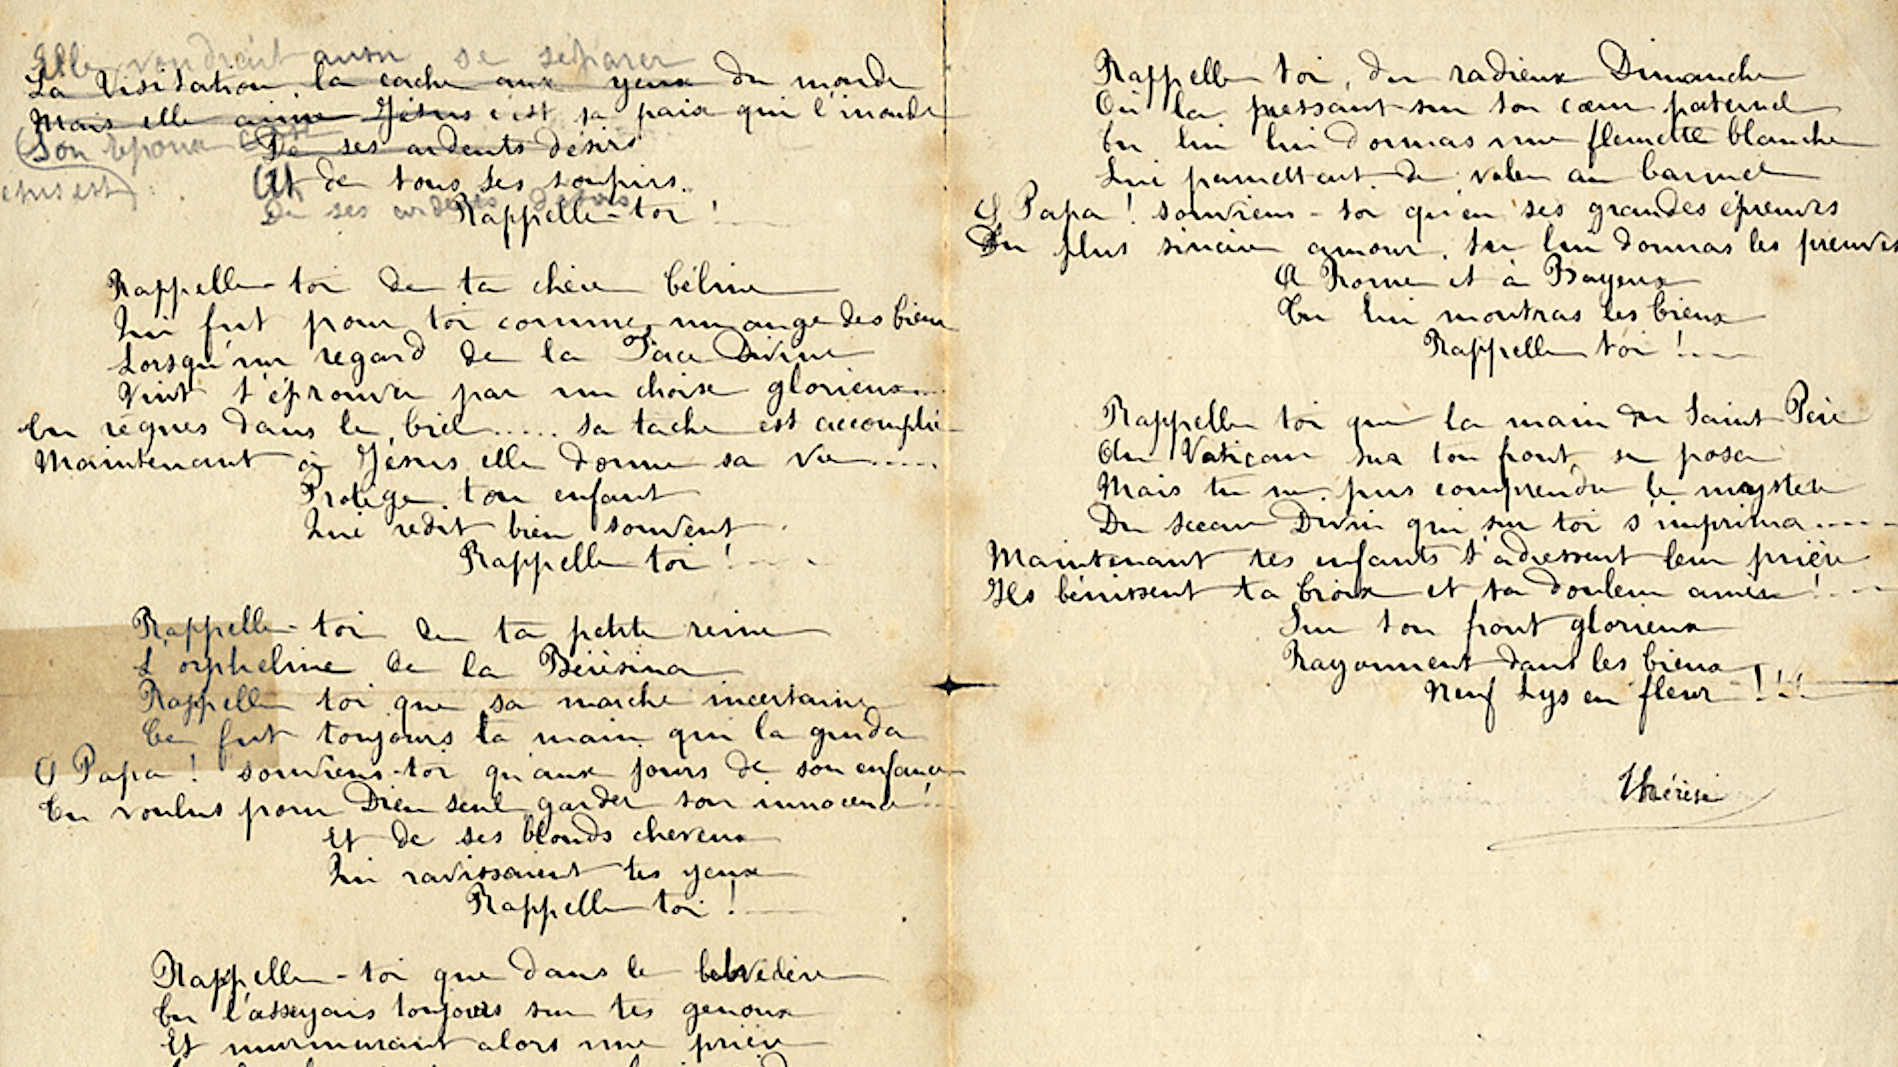 Elle voudrait aussi se séparer
La Visitation la cache aux yeux du monde
Mais elle aime Jésus c'est sa paix qui l'inonde
Son époux
De ses ardents désirs
Et de tous ses soupirs
De ses ardents désirs
Rappelle-toi !
Rappelle-toi de ta chère Céline
Qui fut pour toi comme un ange des Cieux
Lorsqu'un regard de la Face Divine
Vint t'éprouver par un choix glorieux....
Tu règnes dans le Ciel...... sa tâche est accomplie
Maintenant à Jésus elle donne sa vie.....
Protège ton enfant
Qui redit bien souvent
Rappelle toi !
Rappelle-toi de ta petite reine
L'orpheline de la Bérésina
Rappelle toi que sa marche incertaine
Ce fut toujours ta main qui la guida
O Papa ! souviens-toi qu'aux jours de son enfance
Tu voulus pour Dieu seul garder son innocence !..
Et de ses blonds cheveux
Qui ravissaient tes yeux
Rappelle toi !
Rappelle-toi que dans le belvédère
Tu l'asseyais toujours sur tes genoux
Et murmurant alors une prière
Rappelle toi, du radieux Dimanche
Où la pressant sur ton cœur paternel
Tu lui donnas une fleurette blanche
Lui permettant de voler au Carmel
O Papa ! souviens-toi qu'en ses grandes épreuves
Du plus sincère amour, tu lui donnas les preuves
A Rome et à Bayeux
Tu lui montras les Cieux
Rappelle toi !....
Rappelle toi que la main du Saint Père
Au Vatican sur ton front se posa
Mais tu ne pus comprendre le mystère
Du sceau Divin qui sur toi s'imprima.....
Maintenant tes enfants t'adressent leur prière
Ils bénissent ta Croix et ta douleur amère !....
Sur ton front glorieux
Rayonnent dans les Cieux
Neuf Lys en fleur !!!
Thérèse